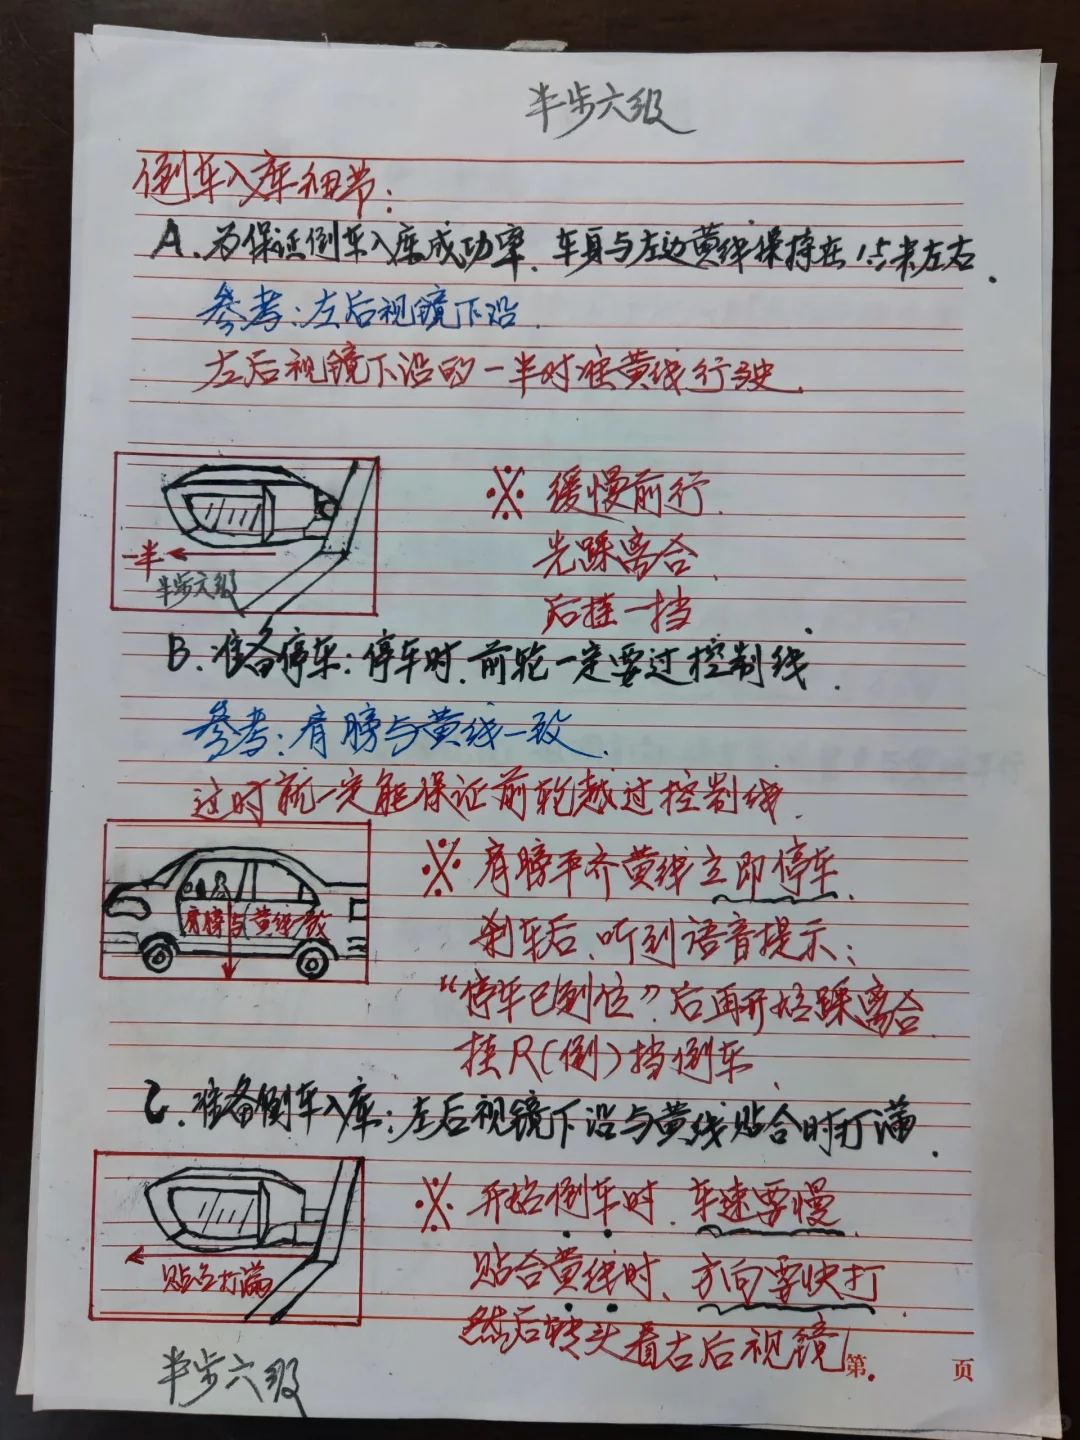 半步六级
倒车入库细节：
A.为保证倒车入库成功率、车身与左边黄线保持在1.5米左右.
参考：左后视镜下沿.
左后视镜下沿的一半对准黄线行驶.
一半
半步六级
※ 缓慢前行.
先踩离合.
后挂一挡
B.准备停车：停车时.前轮一定要过控制线.
参考：肩膀与黄线一致.
这时就一定能保证前轮越过控制线.
肩膀与黄线一致
※ 肩膀平齐黄线立即停车.
刹车后、听到语音提示：
“停车已到位”后再开始踩离合
挂R(倒)挡倒车.
C.准备倒车入库：左后视镜下沿与黄线贴合时打满.
贴合打满
※ 开始倒车时.车速要慢
贴合黄线时、方向要快打.
然后转头看右后视镜.
第 页
半步六级